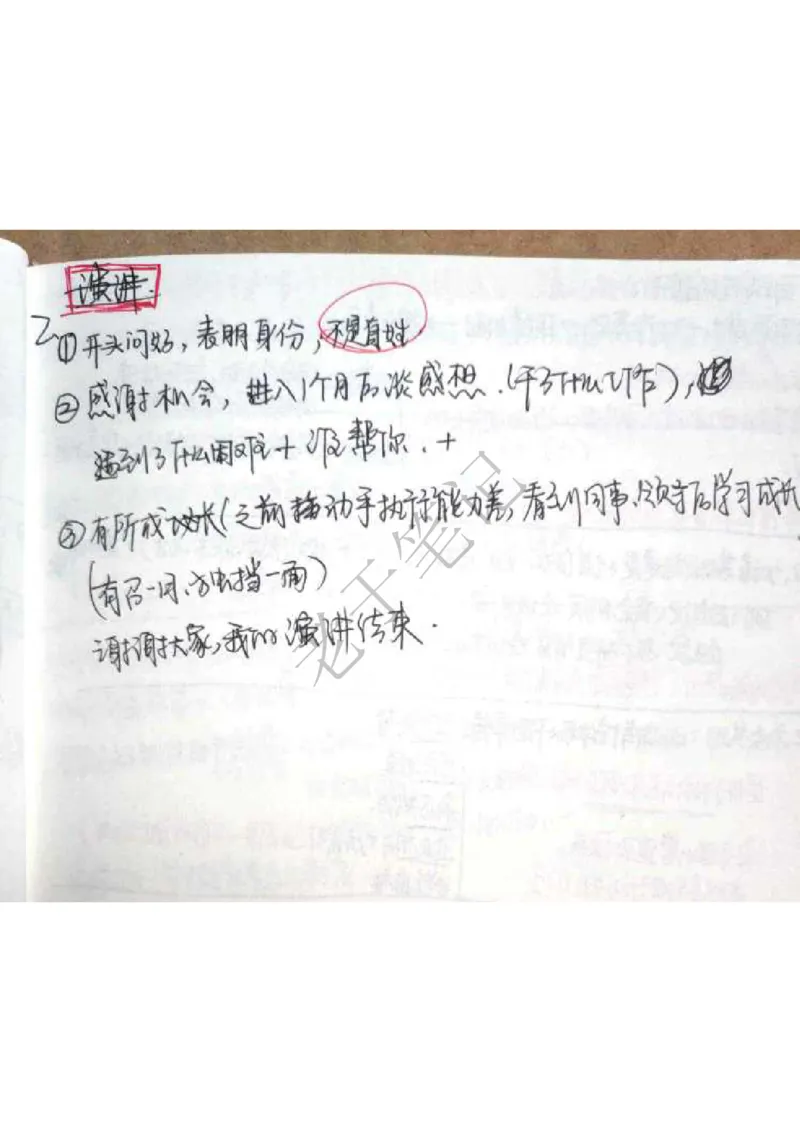 演讲.
2、①开头问好,表明身份,不更有姓
②感谢机会,进入1个月后谈感想.(干了什么工作),
遇到了什么困难+谁帮你.+
③有所成长(之前 动手执行能力差,看到同事、领导后学习成长
(有召一同、方虫挡一面)
谢谢大家,我的演讲结束.
老干笔记